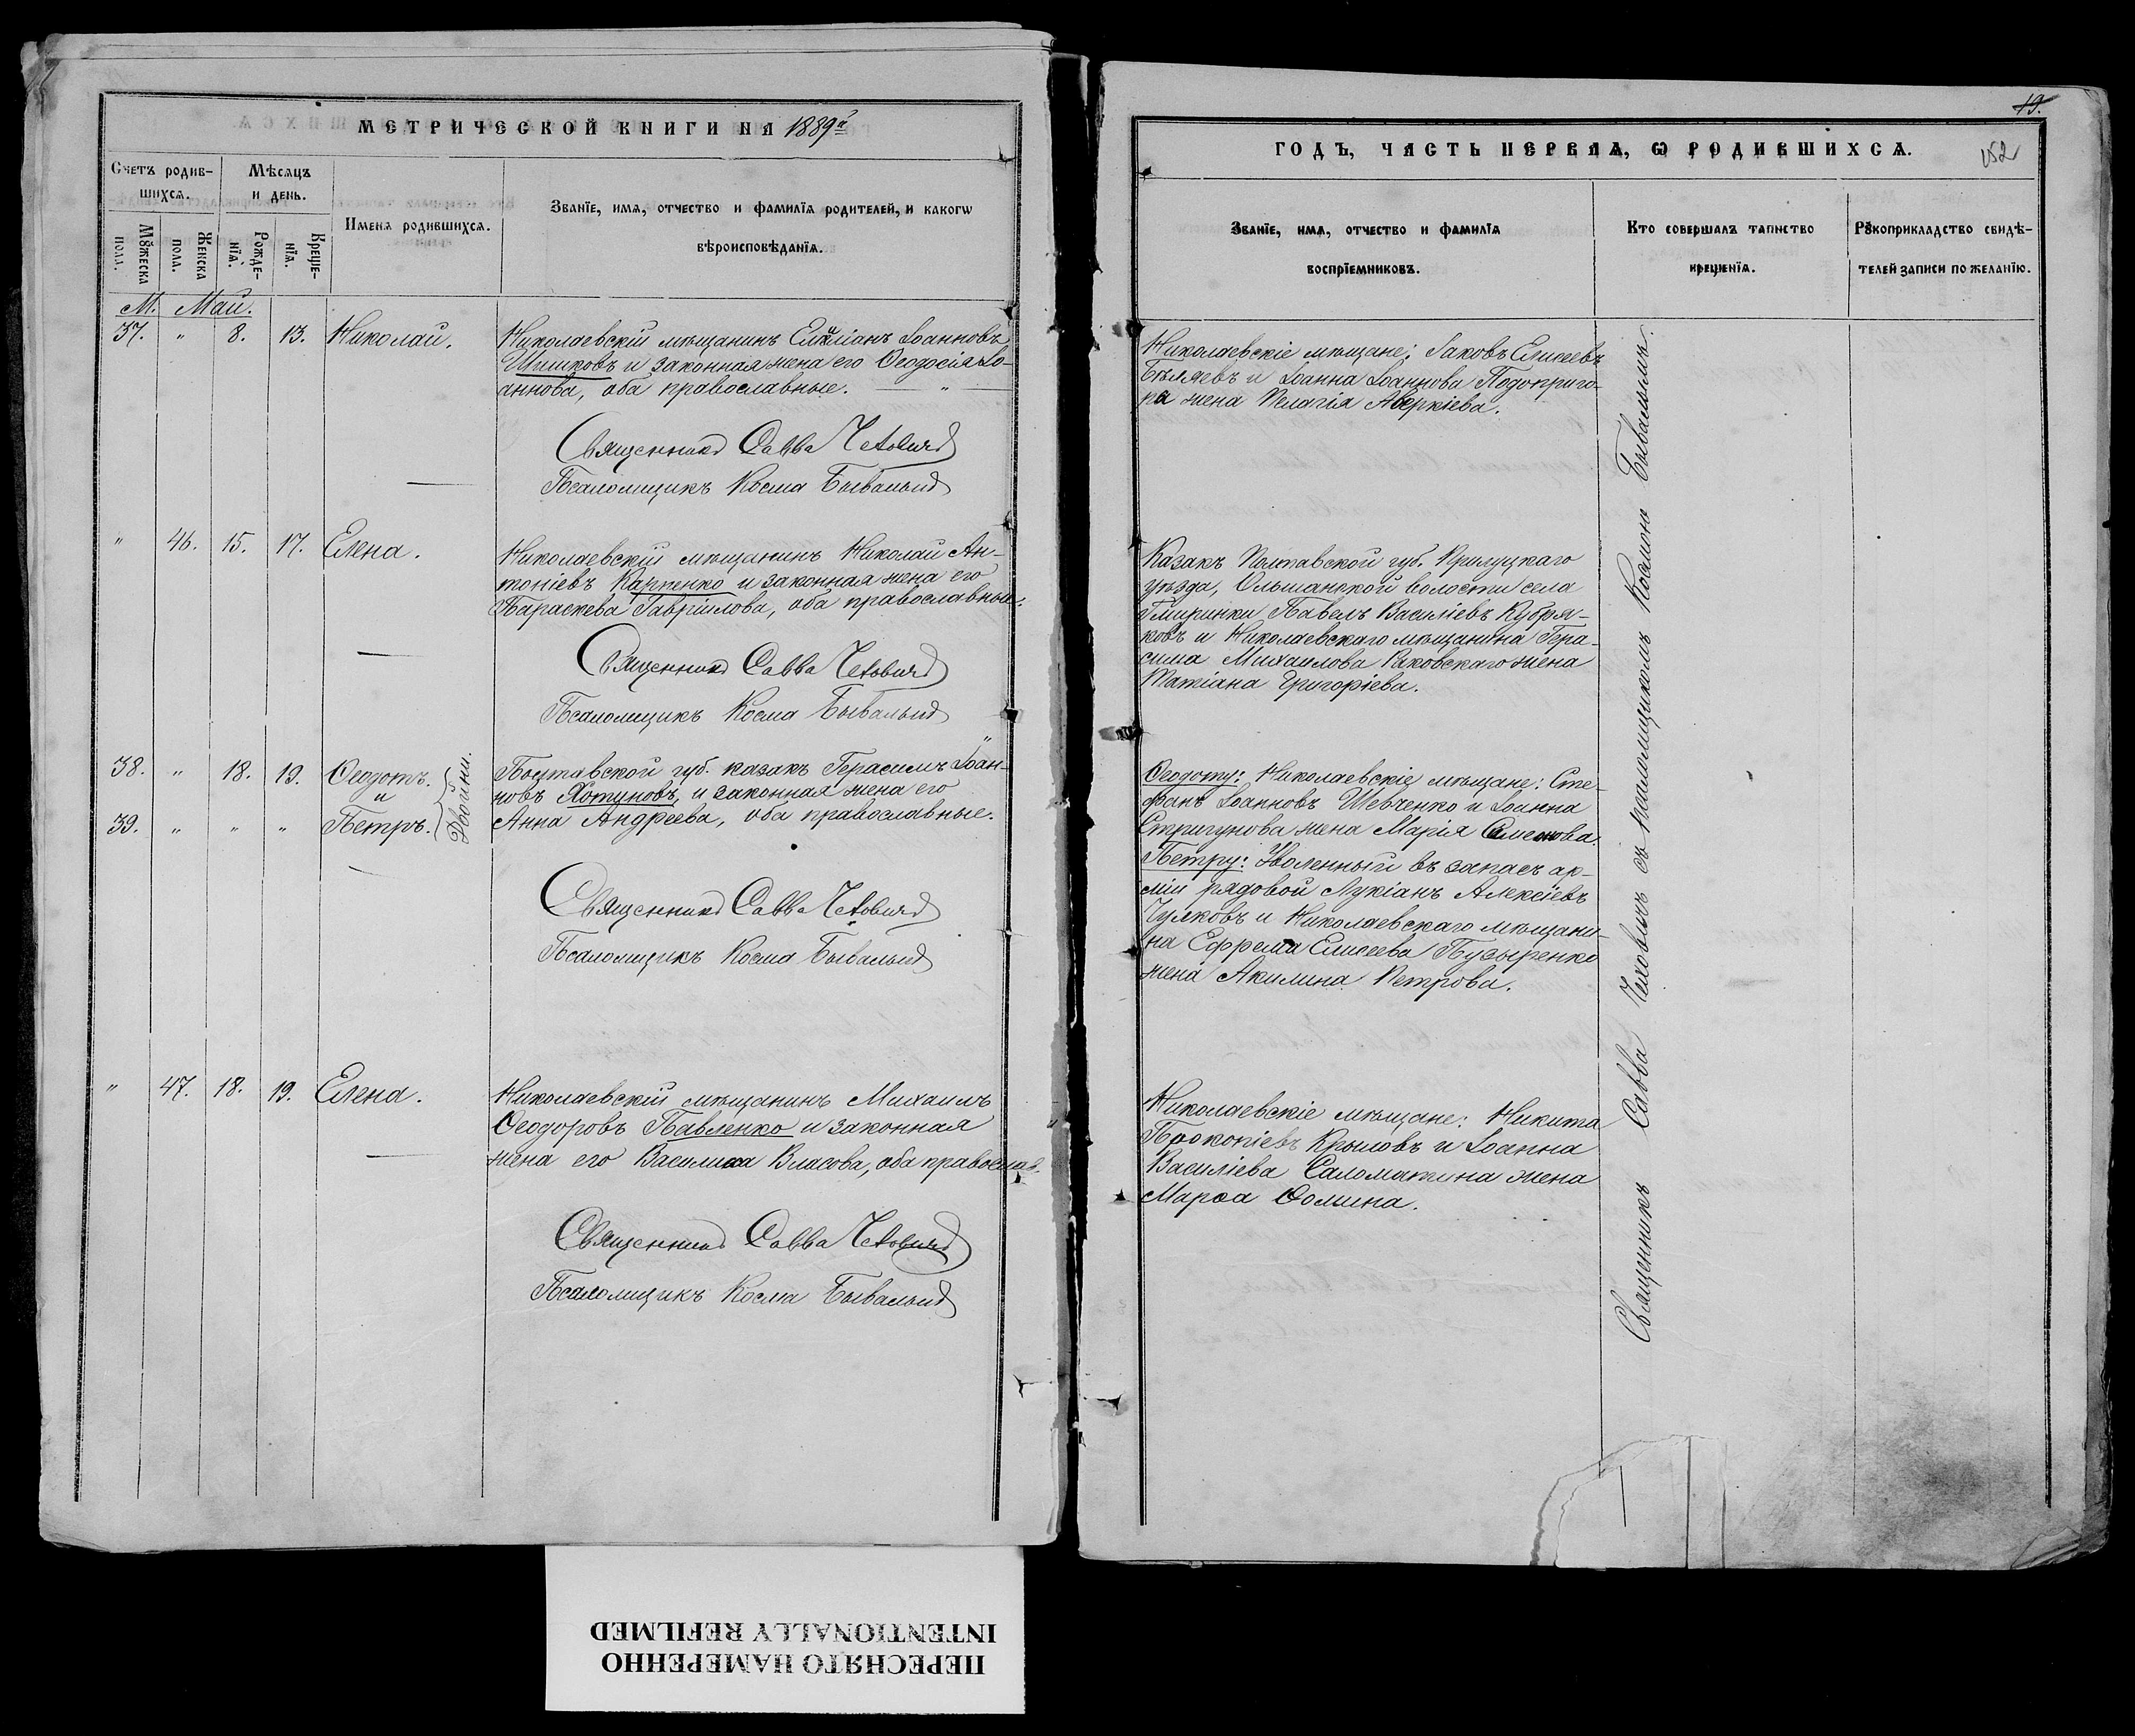 МЕТРИЧЕСКОЙ КНИГИ НА 1889й
Счетъ родив-
шихсѧ.
Мѣсяцъ
и день.
Мꙋжеска
пола.
Женска
пола.
Рожде-
нїѧ.
Креще-
нїѧ.
Имена родившихсѧ.
Званїе, имѧ, отчество и фамилїѧ родителей, и какогѡ
вѣроисповѣданїѧ.
М. Май.
37. " 8. 13. Николай.
Николаевскій мѣщанинъ Іоанновъ
Шишковъ и законная жена его Ѳеодосія Іо-
аннова, оба православные. — " —
Священникъ Савва
Псаломщикъ Косма Бывалый
" 46. 15. 17. Елена.
Николаевскій мѣщанинъ Николай Ан-
тоніевъ Карпенко и законная жена его
Параскева Гавріилова, оба православные.
Священникъ Савва
Псаломщикъ Косма Бывалый
38. " 18. 19. Ѳеодотъ.
и
39. " " " Петръ.
Двойни.
Полтавской губ. казакъ Герасимъ Іоан-
новъ Хотуновъ, и законная жена его
Анна Андреева, оба православные.
Священникъ Савва
Псаломщикъ Косма Бывалый
" 47. 18. 19. Елена.
Николаевскій мѣщанинъ Михаилъ
Ѳеодоровъ Павленко и законная
жена его Василиса Власова, оба православ.
Священникъ Савва
Псаломщикъ Косма Бывалый
19.
152
ГОДЪ, ЧАСТЬ ПЕРВАѦ, Ѡ РОДИВШИХСѦ.
Званїе, имѧ, отчество и фамилїѧ
воспрїемниковъ.
Кто совершалъ таинство
крещенїѧ.
Рꙋкоприкладство свидѣ-
телей записи по желанїю.
Николаевскіе мѣщане: Іаковъ Елисеевъ
Бѣляевъ и Іоанна Іоаннова Подоприго-
ра жена Пелагія Аверкіева.
Казакъ Полтавской губ. Прилуцкаго
уѣзда, Ольшанской волости села
Гмиринки Павелъ Василіевъ Кубря-
ковъ и Николаевскаго мѣщанина Гера-
сима Михаилова Раковскаго жена
Татіана Григоріева.
Ѳеодоту: Николаевскіе мѣщане: Сте-
фанъ Іоанновъ Шевченко и Іоанна
Стригунова жена Марія Симеонова.
Петру: Уволенный въ запасъ ар-
міи рядовой Лукіанъ Алексіевъ
Чулковъ и Николаевскаго мѣщани-
на Ефрема Елисеева Пузыренко
жена Акилина Петрова.
Николаевскіе мѣщане: Никита
Прокопіевъ Крыловъ и Іоанна
Василіева Саломатина жена
Марѳа Ѳомина.
Священникъ Савва съ псаломщикомъ Космою Бывалымъ.
ПЕРЕСНЯТО НАМЕРЕННО
INTENTIONALLY REFILMED